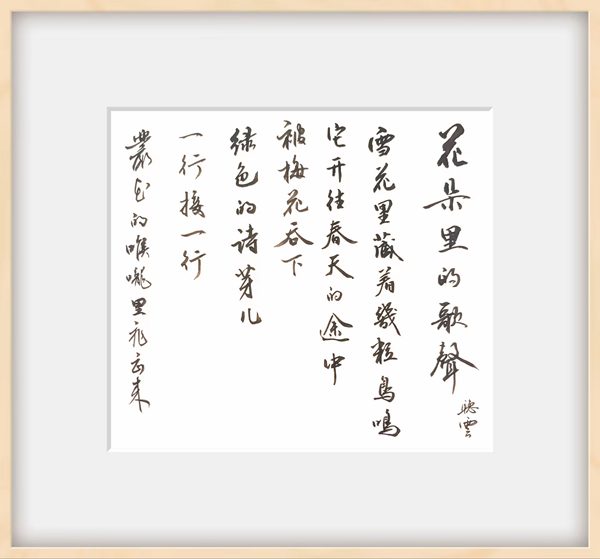 花朵里的歌聲
聽雲
雪花里藏着幾粒鳥鳴
它开往春天的途中
被梅花吞下
绿色的诗芽儿
一行接一行
叢它的喉嚨里飛出来